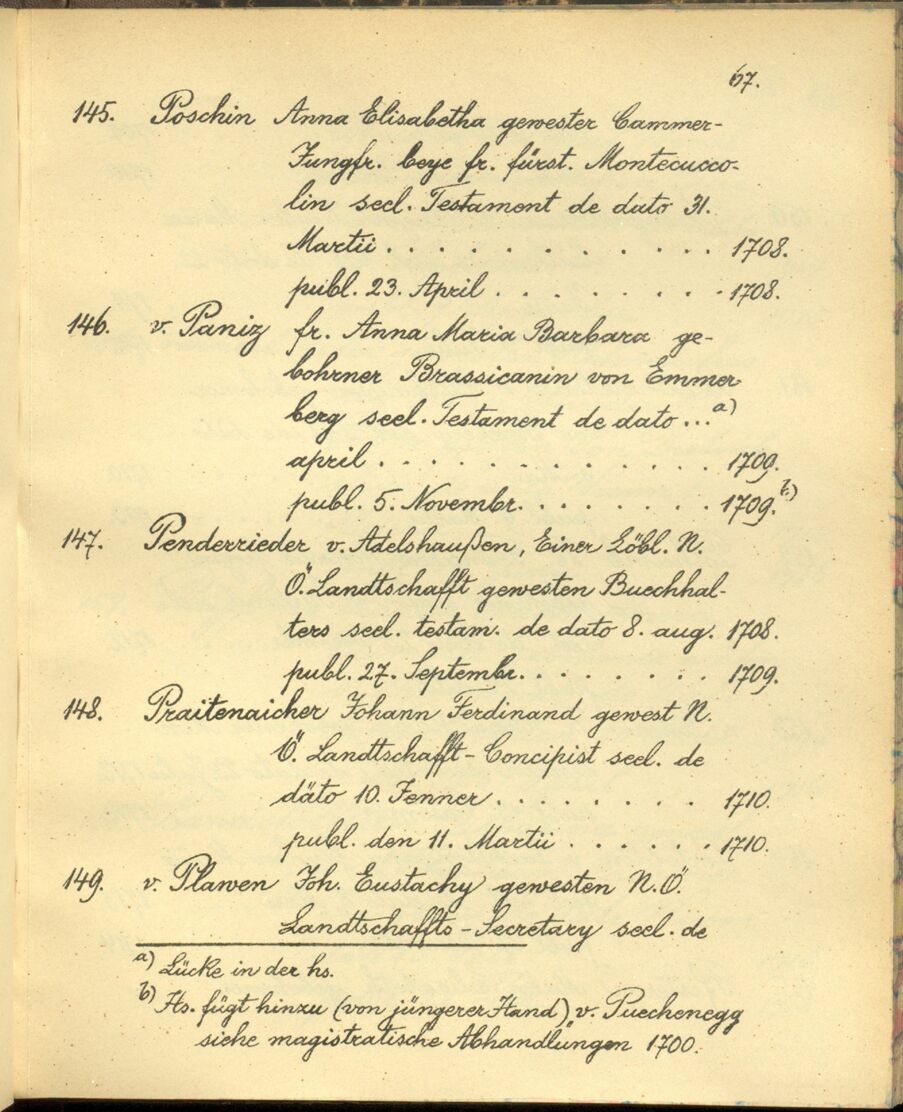 67.
145. Poschin Anna Elisabetha gewester Cammer-
Jungfr. beye fr. fürst. Montecucco-
lin seel. Testament de dato 31.
Martii . . . . . . . . . . . . 1708.
publ. 23. April . . . . . . . . 1708.
146. v. Paniz fr. Anna Maria Barbara ge-
bohrner Brassicanin von Emmer-
berg seel. Testament de dato ... a)
april . . . . . . . . . . . . 1709.
publ. 5. Novembr. . . . . . . . 1709. b)
147. Penderrieder v. Adelshaußen, Einer Löbl. N.
Ö. Landtschafft gewesten Buechhal-
ters seel. testam. de dato 8. aug. 1708.
publ. 27. Septembr. . . . . . . . 1709.
148. Praitenaicher Johann Ferdinand gewest N.
Ö. Landtschafft-Concipist seel. de
däto 10. Jenner . . . . . . . . 1710.
publ. den 11. Martii . . . . . . 1710.
149. v. Plawen Joh. Eustachy gewesten N.Ö.
Landtschaffts-Secretary seel. de
a) Lücke in der hs.
b) Hs. fügt hinzu (von jüngerer Hand) v. Puechenegg
siehe magistratische Abhandlungen 1700.